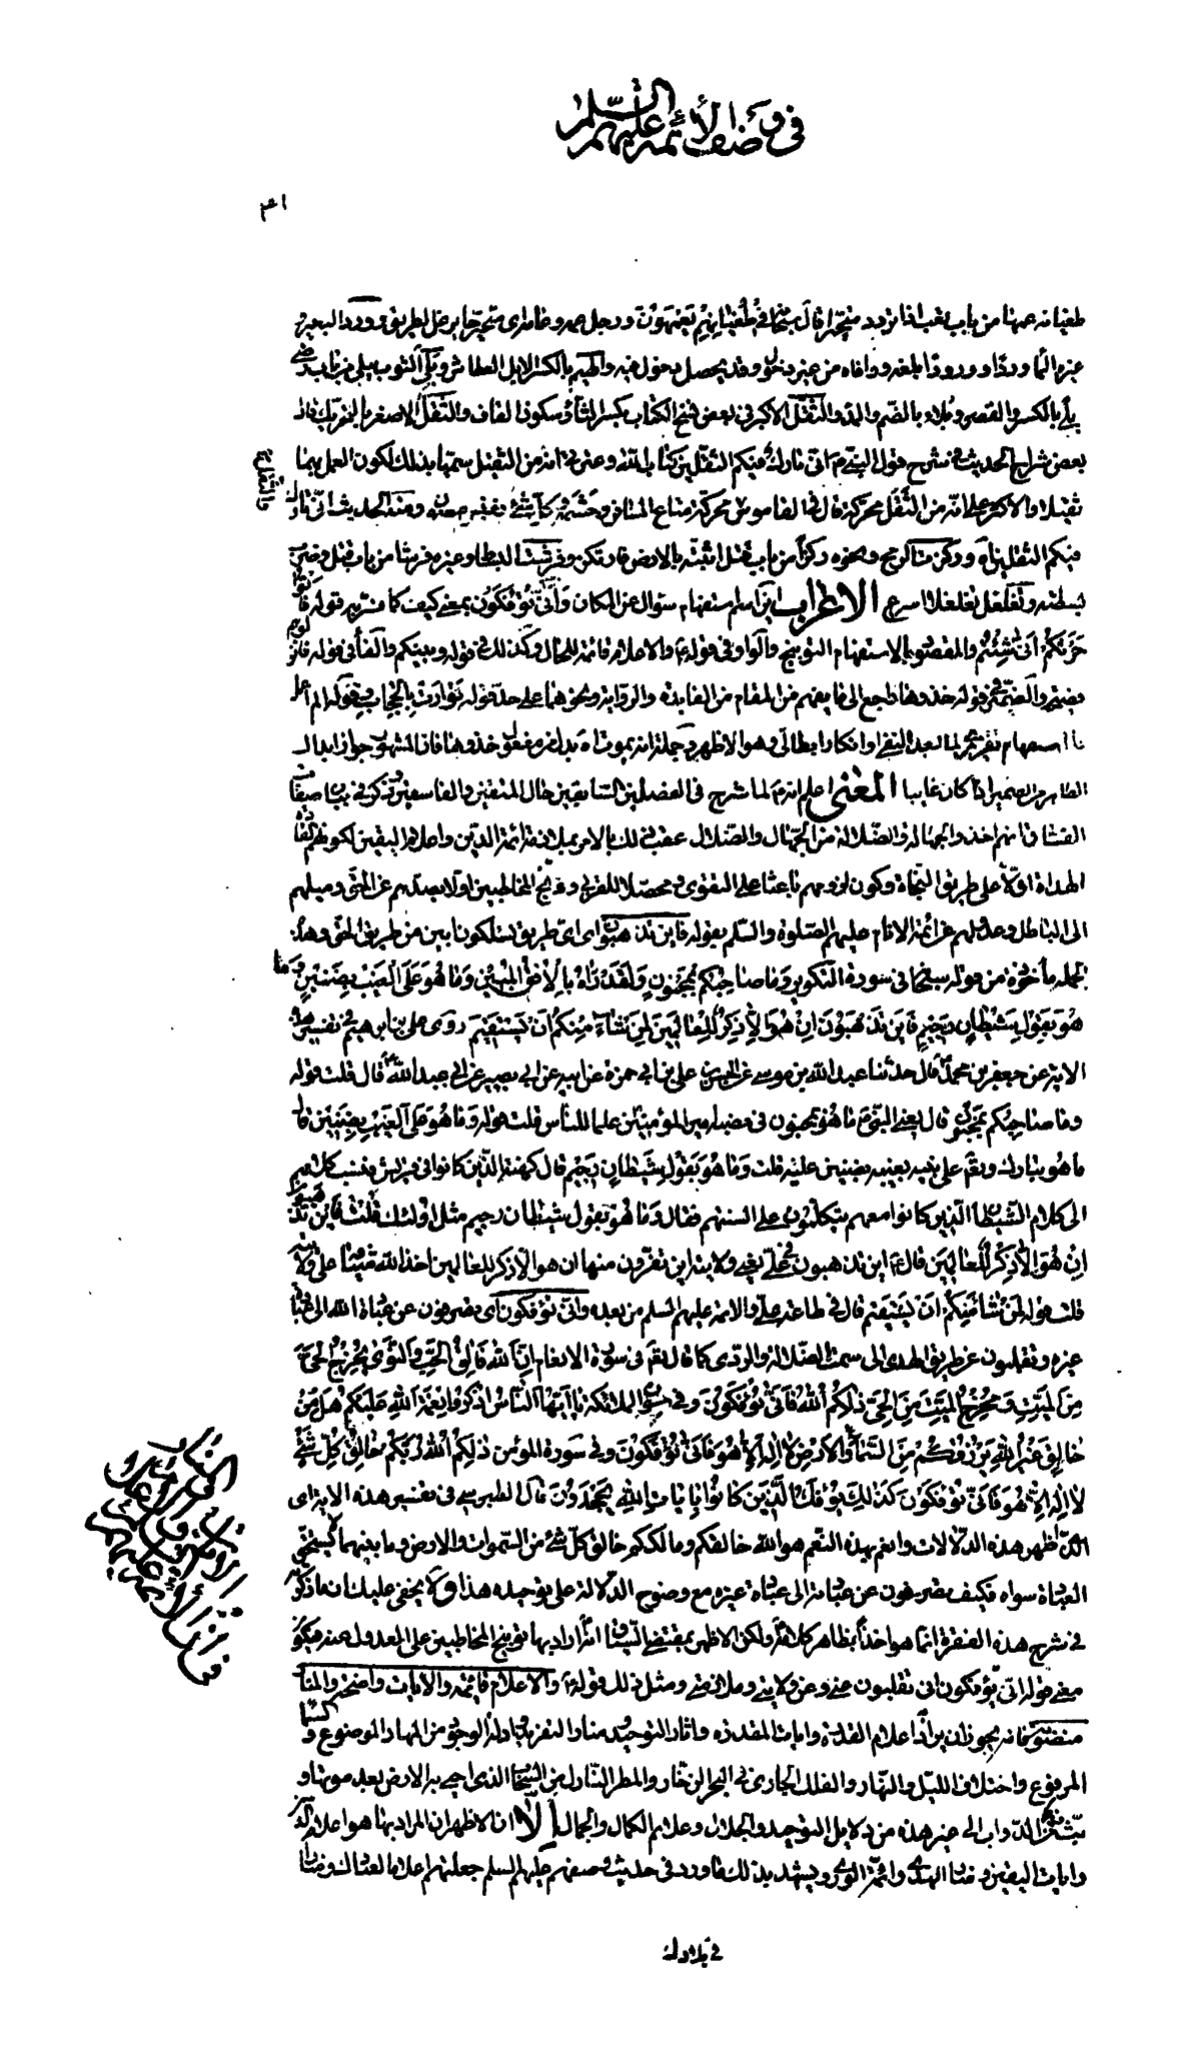 في وصف الأئمة عليهم السلام
٣١
طغيانه عمها من باب تعب اذا تردد متحيرا قال سبحانه في طغيانهم يعمهون ورجل عمه وعامه اى متحير جاير عن الطريق وورد البعير و
غيره الماء وردا و ورودا بلغه ووافاه من غير دخول وقد يحصل دخول فيه والهيم بالكسر الابل العطاش وبلى الثوب يبلى من باب رضى
بلى بالكسر والقصر وبلاء بالضم والمد والثقل الاكبر في بعض نسخ الكتاب بكسر الثاء وسكون القاف والثقل الاصغر بالتحريك قال
بعض شراح الحديث في شرح قول النبي انى تارك فيكم الثقلين كتاب الله وعترتي انه من الثقل سميا بذلك لكون العمل بهما
ثقيلا والاكثر على انه من الثقل محركة قال في القاموس محركة متاع المسافر وحشمه وكل شيء نفيس مصون ومنه الحديث انى تارك
فيكم الثقلين اه وركزت الرمح ونحوه ركزا من باب قتل اثبته بالارض فارتكز وفرشت البساط وغيره فرشا من باب قتل وضرب
بسطته وتغلغل تغلغلا اسرع الاعراب اين اسم استفهام سؤال عن المكان وأنى تؤفكون بمعنى كيف كما فسر به قوله فأتوا
حرثكم أنى شئتم والمقصود بالاستفهام التوبيخ والواو في قوله والاعلام قائمة للحال وكذلك في قوله وبينكم والفاء في قوله فانزلوهم
فصيحة والضمير في قوله خذوها راجع الى ما يفهم من المقام من الفايدة والرواية ونحوهما على حد قوله توارت بالحجاب وقوله الم اعمل
استفهام تقريري لما بعد النفى او انكار ابطالى وهو الاظهر وجملة انه يموت اه بدل من مفعول خذوها فان المشهور جواز ابدال
الظاهر من الضمير اذا كان غايبا المعنى اعلم انه لما شرح في الفصلين السابقين حال المتقين والفاسقين وذكر في بيان صفات
الفساق انهم اخذوا الجهالة والضلالة من الجهال والضلال عقب ذلك بالامر بملازمة ائمة الدين واعلام اليقين لكونهم القادة
الهداة ادلاء على طريق النجاة وكون لزومهم باعثا على التقوى ومحصلا للقربى ووبخ المخاطبين اولا بصدهم عن الحق وميلهم
الى الباطل وعدولهم عن ائمة الانام عليهم الصلوة والسلم بقوله فاين تذهبون اى اى طريق تسلكون ابين من طريق الحق وهذه
الجملة مأخوذة من قوله سبحانه في سورة التكوير وما صاحبكم بمجنون ولقد رآه بالأفق المبين وما هو على الغيب بضنين وما
هو بقول شيطان رجيم فأين تذهبون إن هو إلا ذكر للعالمين لمن شاء منكم أن يستقيم روى على بن ابراهيم في تفسير هذه
الاية عن جعفر بن محمد قال حدثنا عبد الله بن موسى عن الحسن بن على بن ابى حمزة عن ابيه عن ابى بصير عن ابى عبد الله قال قلت قوله
وما صاحبكم بمجنون قال يعنى النبى ما هو بمجنون في نصبه امير المؤمنين علما للناس قلت قوله وما هو على الغيب بضنين قال
ما هو تبارك وتعالى على نبيه بغيبه بضنين عليه قلت وما هو بقول شيطان رجيم قال كهنة الذين كانوا في قريش فنسب كلامهم
الى كلام الشيطان الذين كانوا معهم يتكلمون على السنتهم فقال وما هو بقول شيطان رجيم مثل اولئك قلت فأين تذهبون
إن هو إلا ذكر للعالمين قال اين تذهبون في على يعنى ولايته اين تفرون منها ان هو الا ذكر للعالمين اخذ الله ميثاقه على ولايته
قلت قوله لمن شاء منكم أن يستقيم قال في طاعة على والائمة عليهم السلم من بعده وأنى تؤفكون اى تصرفون عن عبادة الله الى عبادة
غيره وتقلبون عن طريق الهدى الى سمت الضلالة والردى كما قال تعالى في سورة الانعام إن الله فالق الحب والنوى يخرج الحي
من الميت ومخرج الميت من الحي ذلكم الله فأنى تؤفكون وفي سورة الملائكة يا أيها الناس اذكروا نعمة الله عليكم هل من
خالق غير الله يرزقكم من السماء والأرض لا إله إلا هو فأنى تؤفكون وفي سورة المؤمن ذلكم الله ربكم خالق كل شيء
لا إله إلا هو فأنى تؤفكون كذلك يؤفك الذين كانوا بآيات الله يجحدون قال الطبرسى في تفسير هذه الاية اى
الذى اظهر هذه الدلالات وانعم بهذه النعم هو الله خالقكم ومالككم خالق كل شئ من السموات والارض وما بينهما لا يستحق
العبادة سواه فكيف تصرفون عن عبادته الى عبادة غيره مع وضوح الدلالة على توحيده هذا ولا يخفى عليك ان ما ذكرته
في شرح هذه الفقرة انما هو اخذا بظاهر كلامه ولكن الاظهر بمقتضى السياق انه اراد بها توبيخ المخاطبين على العدول عنه فيكون
معنى قوله انى تؤفكون انى تقلبون عنى وعن ولايتى وملازمتى ومثل ذلك قوله والاعلام قائمة والايات واضحة والمنار
منصوبة فانه يجوز ان يراد اعلام القدرة وايات المقدرة واثار التوحيد ومنار التفريد وادلة الوجود من المهاد الموضوع والسماء
المرفوع واختلاف الليل والنهار والفلك الجارى في البحر الزخار والمطر النازل من السماء الذى احيى به الارض بعد موتها و
بث فيها من الدواب الى غير هذه من دلايل التوحيد والجلال وعلائم الكمال والجمال إلا ان الاظهر ان المراد بها هو اعلام الدين
وايات اليقين ومنار الهدى وائمة الورى ويشهد بذلك ما ورد في حديث وصفهم عليهم السلم جعلتهم اعلاما لعبادك ومنارا
في بلادك